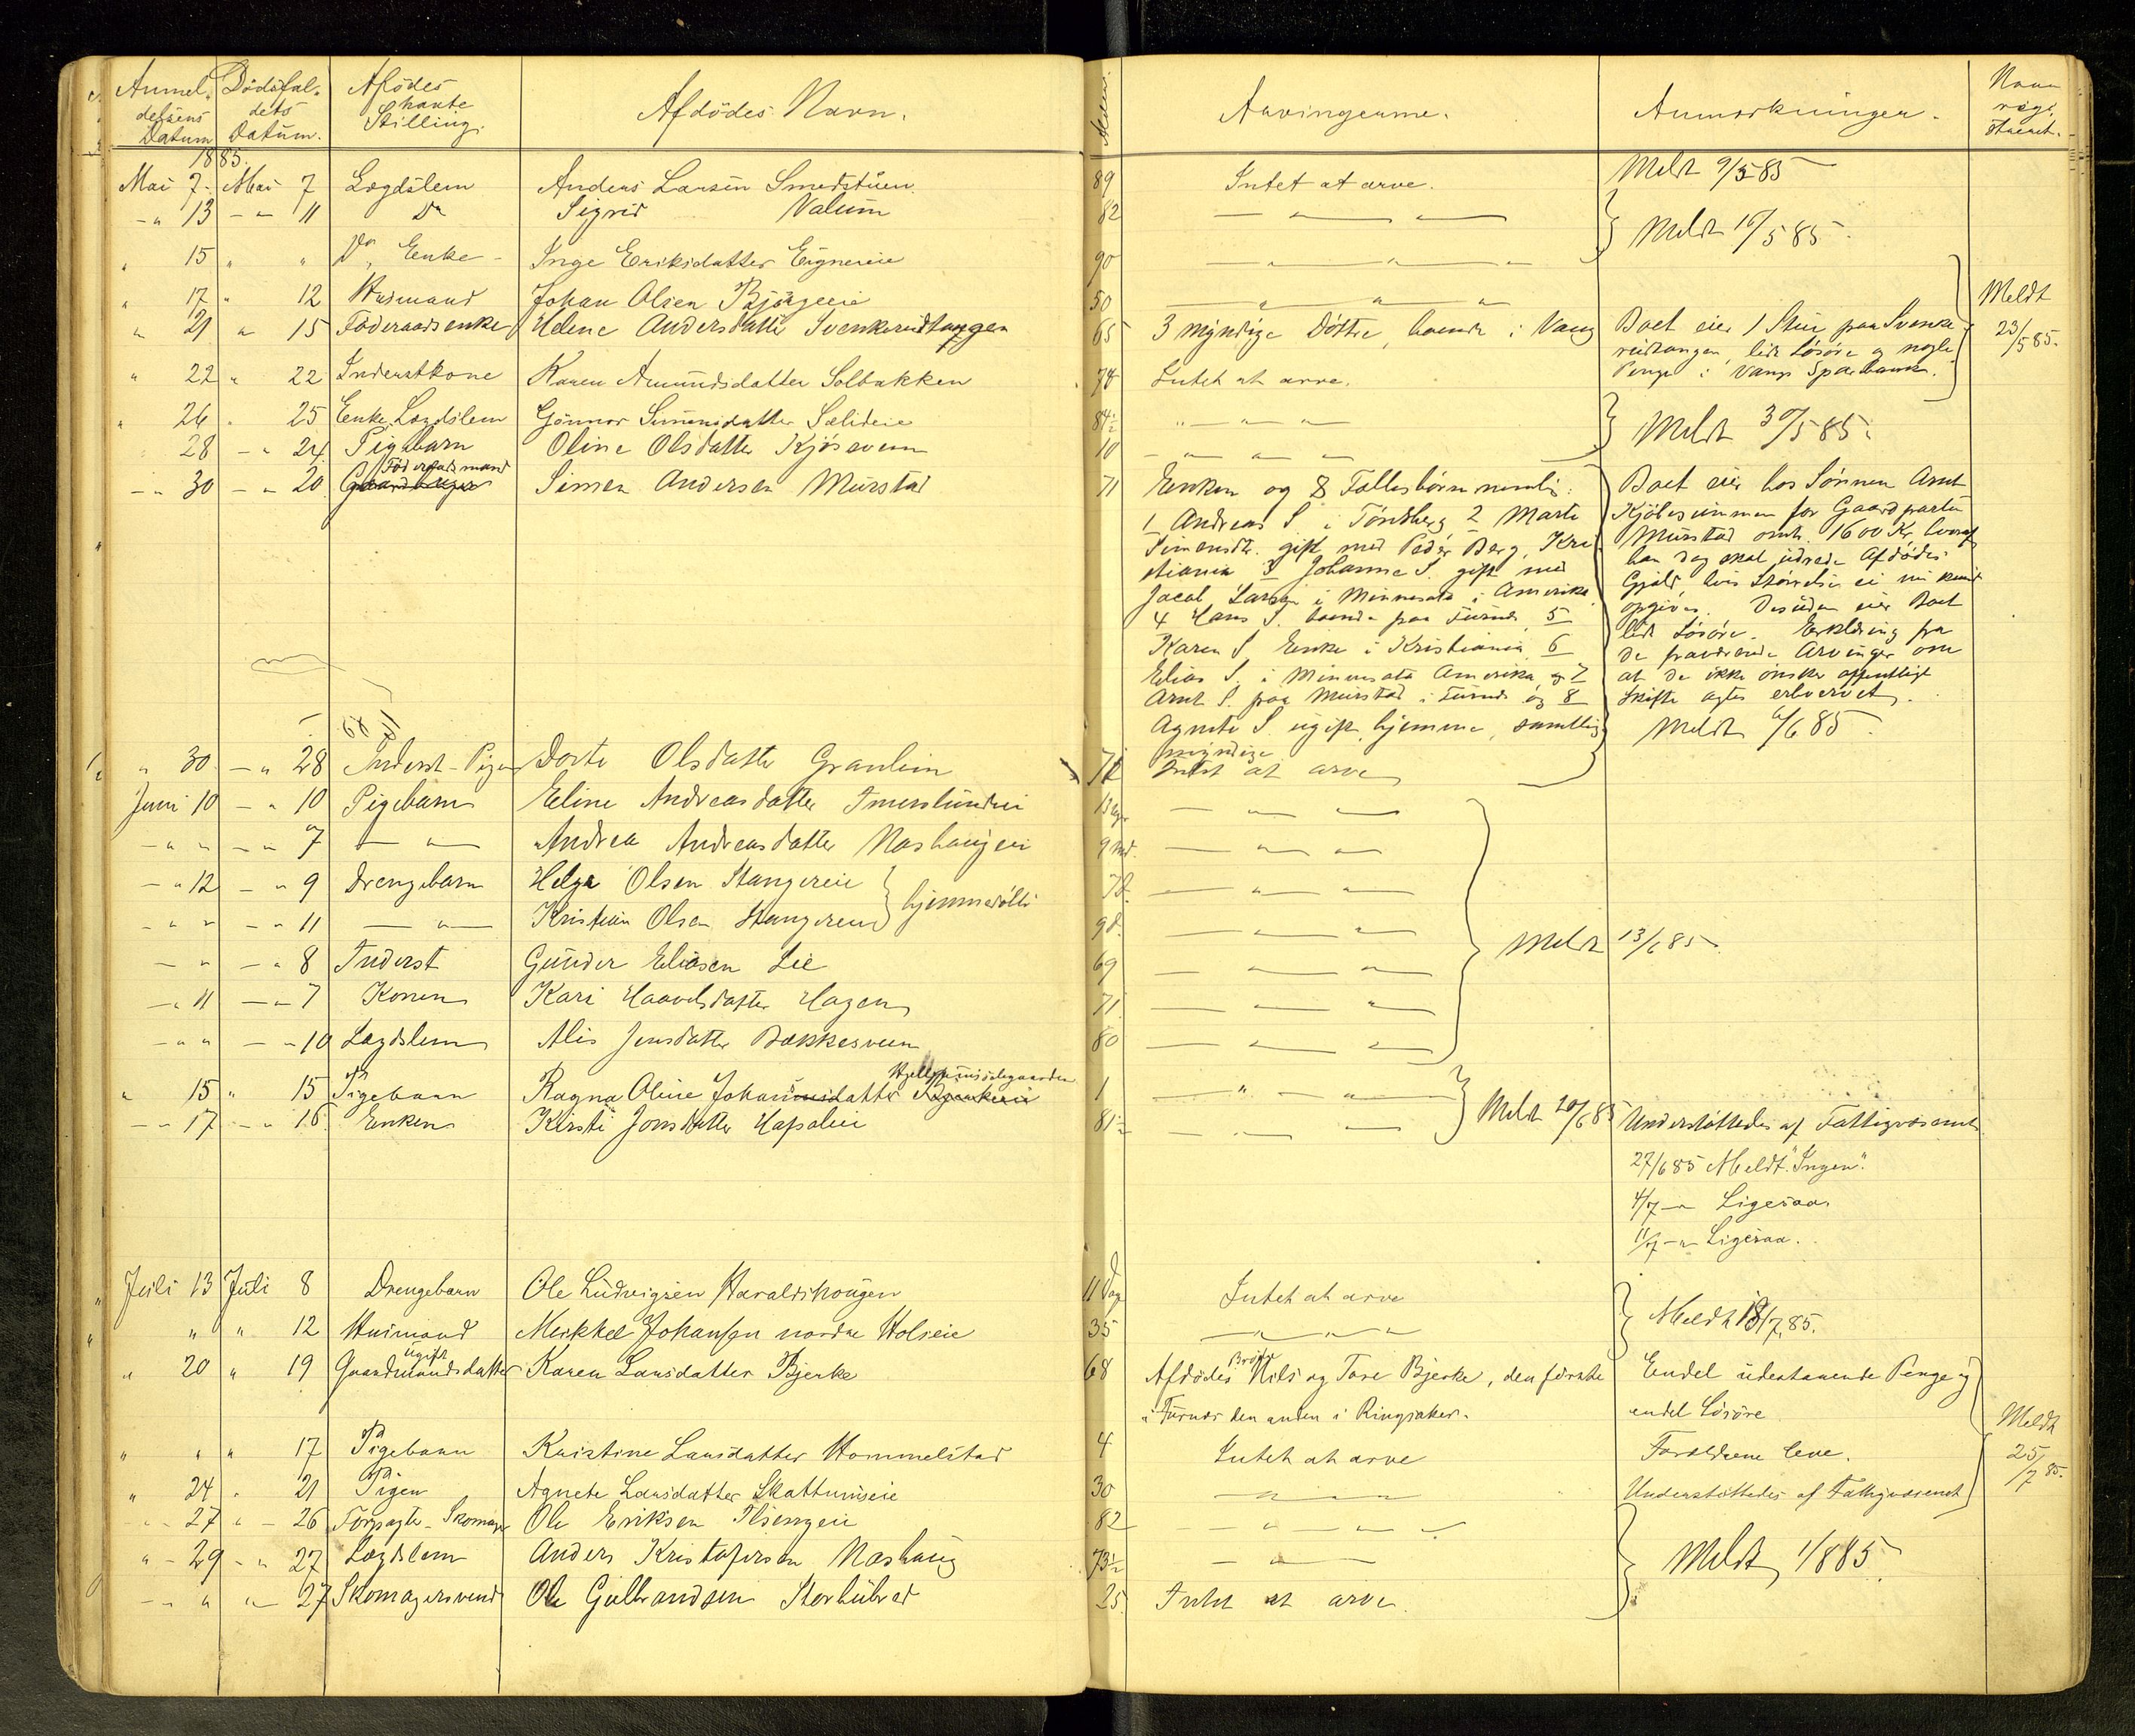 Anmel- Dödsfal- Afdödes Afdödes Navn. Alder. Arvingerne. Anmærkninger. Navn
delsens dets havte regi-
Datum Datum. Stilling. streret.
1885.
Mai 7 Mai 7 Lægdslem Anders Larsen Smedstuen 89 Intet at arve. Meldt 9/5 85
" 13 " 11 Do Sigrid Valum 82 — " — " — Meldt 16/5 85.
" 15 " " Do Enke Inge Eriksdatter Eignereie 90 — " — " —
" 17 " 12 Husmand Johan Olsen Bjørgeeie 50 — " — " — " Meldt
" 21 " 15 Föderaadsenke Helene Andersdatter Svenkerudtangen 65 3 myndige Döttre, boende i Vang Boet eier 1 Stue paa Svenke- 23/5 85.
rudtangen, lidt Lösöre og nogle
" 22 " 22 Inderstkone Karen Amundsdatter Solbakken 78 Intet at arve. Penge i Vangs Sparebank.
" 26 " 25 Enke Lægdslem Gönnor Simensdatter Sælideie 84½ " — " — "
" 28 " 24 Pigebarn Oline Olsdatter Kjöseveen 10 — " — " — Meldt 30/5 85.
" 30 " 20 Föderaadsmand Simen Andersen Murstad 71 Enken og 8 Fællesbörn nemlig: Boet eier hos Sönnen Arnt
1 Andreas S. i Tönsberg 2 Marte Kjöbesummen for Gaardparten
Simensdtr. gift med Peder Berg, Kri- Murstad omtr. 1600 Kr. hvoraf
stiania 3 Johanne S. gift med han dog skal udrede Afdödes
Jacob Larsen i Minnesota i Amerika Gjæld hvis Størrelse ei nu kund
4 Hans S. boende paa Furnes 5 opgives. Desuden eier Boet
Karen S. Enke i Kristiania 6 lidt Lösöre. Erklæring fra
Elias S. i Minnesota Amerika og 7 de fraværende Arvinger om
Arnt S. paa Murstad i Furnes og 8 at de ikke önsker offentligt
Agnete S. ugift, hjemme, samtlige Skifte agtes erhvervet.
myndige Meldt 6/6 85.
" 30 " 28 Inderst-Pigen Dorte Olsdatter Granlien 72 Intet at arve
Juni 10 " 10 Pigebarn Eline Andreasdatter Imerslundei — " —
" " " 7 — " — Andrea Andreasdatter Næshaugen 9 Md. — " —
" 12 " 9 Drengebarn Helge Olsen Stangereie hjemmedöbt 7 d. — " — " —
" " " 11 — " — Kristian Olsen Stangereie 9 d. — " — " —
" " " 8 Inderst Gunder Eliasen Lie 69 — " — " — Meldt 13/6 85.
" 11 " 7 Konen Kari Haavelsdatter Hagen 71 — " — " —
" " " 10 Lægdslem Alis Jensdatter Bækkesveen 80 — " — " —
" 15 " 15 Pigebarn Ragna Oline Johannesdatter 1 — " — " —
" 17 " 16 Enken Kirsti Jonsdatter 81½ — " — " — Meldt 20/6 85 Understöttedes af Fattigvæsenet
27/6 85 Meldt "Ingen".
4/7 " Ligesaa.
11/7 " Ligesaa.
Juli 13 Juli 8 Drengebarn Ole Ludvigsen Haraldshougen 11 Dage Intet at arve
" " 12 Husmand Mikkel Johansen nordre Holseie 35 — " — " — Meldt 18/7 85.
" 20 " 19 ugift Gaardmandsdatter Karen Larsdatter Bjerke 68 Afdödes Brödre Nils og Tore Bjerke, den förste Endel udestaaende Penge og
i Furnes den anden i Ringsaker. endel Lösöre Meldt
" " " 17 Pigebarn Kristine Larsdatter Hommelstad 4 Intet at arve Forældrene leve. 25/7 85.
" 24 " 21 Pigen Agnete Larsdatter Skattumseie 30 — " — " — Understöttedes af Fattigvæsenet
" 27 " 26 Ole Eriksen 82 — " — " —
" 29 " 27 Lægdslem Anders Kristofersen Næshaug 73½ — " — Meldt 1/8 85.
" " " 27 Skomagersvend Ole Gulbrandsen Storhübred 25 Intet at arve.